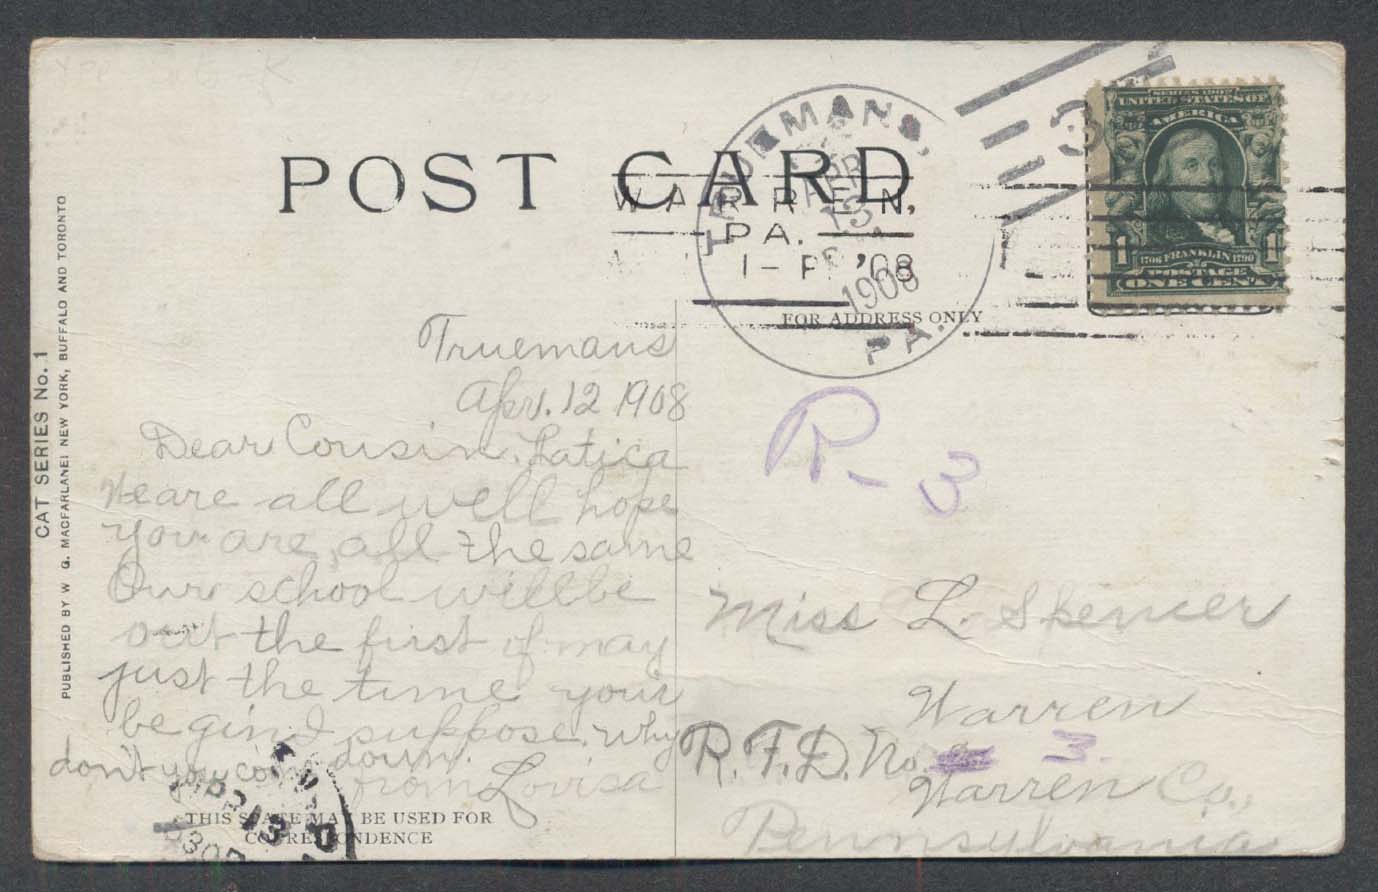 POST CARD
TRUEMANS,
APR
13
1908
PA.
WARREN,
PA.
1-P '08
3
SERIES 1902
UNITED STATES OF
AMERICA
1706 FRANKLIN 1790
1 1
POSTAGE
ONE CENT
FOR ADDRESS ONLY
CAT SERIES No. 1
PUBLISHED BY W G. MACFARLANE NEW YORK, BUFFALO AND TORONTO
Truemans
Apr. 12 1908
Dear Cousin. Latica
We are all well hope
you are all the same
Our school will be
out the first of may
just the time your
begin I suppose. Why
don't you come down.
from Lovisa
R- 3
Miss L. Spencer
Warren
R.F.D. No. 3.
Warren Co.,
Pennsylvania
APR 13
THIS SPACE MAY BE USED FOR
CORRESPONDENCE